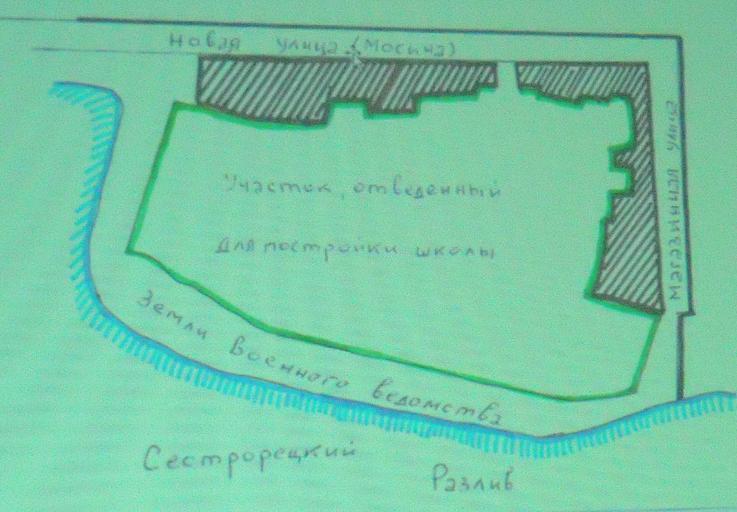 Новая улица (Мосина)
Магазинная улица
Участок, отведенный
для постройки школы
Земли военного ведомства
Сестрорецкий
Разлив